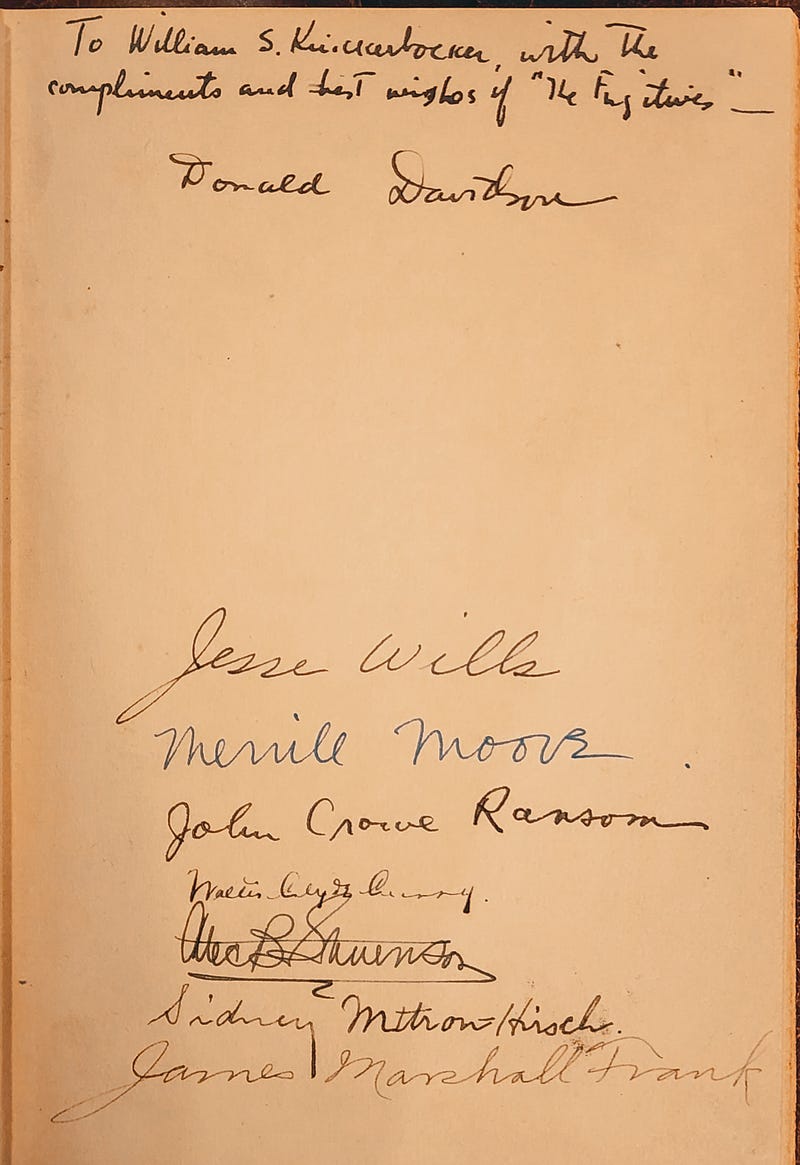 To William S. Knickerbocker, with the
compliments and best wishes of "The Fugitives" —
Donald Davidson
Jesse Wills
Merrill Moore.
John Crowe Ransom
Walter Clyde Curry.
Alec B. Stevenson
Sidney Mttron-Hirsch.
James Marshall Frank